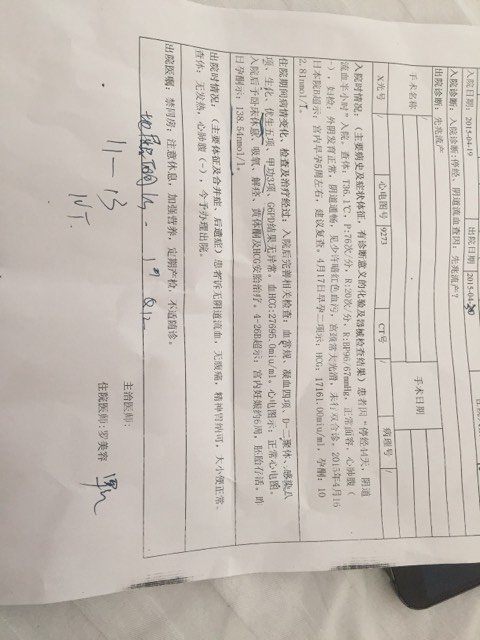 入院日期 2015-04-19 出院日期 2015-04-
入院诊断:停经、阴道流血查因:先兆流产?
出院诊断:先兆流产
手术名称 / 手术日期
X光号 / 心电图号 9273 CT号 / 病理号 /
入院时情况:(主要病史及症状体征,有诊断意义的化验及器械检查结果)患者因“停经44天,阴道
流血半小时”入院。查体:T36.1℃,P:76次/分,R:20次/分,R:BP96/67mmHg,正常面容,心肺腹(
-),妇检:外阴发育正常,阴道通畅,见少许暗红色血污,宫颈常大光滑,未行双合诊。2015年4月16
日本院B超示:宫内早孕5周左右,建议复查。4月17日早孕二项示:HCG:17161.00miu/ml,孕酮:10
2.81nmol/T。
住院期间病情变化、检查及治疗经过:入院后完善相关检查:血常规、凝血四项、D-二聚体、感染八
项、生化、优生五项、甲功3项、G6PD结果无异常。血HCG:27695.0miu/ml。心电图示:正常心电图。
入院后予卧床休息、吸氧、解痉、黄体酮及HCG安胎治疗。4-26B超示:宫内妊娠约6周,胚胎存活。昨
日孕酮示:138.54nmol/l。
出院时情况:(主要体征及合并症、后遗症)患者诉无阴道流血,无腹痛,精神胃纳可,大小便正常。
查体:无发热,心肺腹(-),今予办理出院。
出院医嘱:禁同房,注意休息,加强营养,定期产检,不适随诊。
地屈孕酮
主治医师:
11-13
NT.
住院医师:罗美容